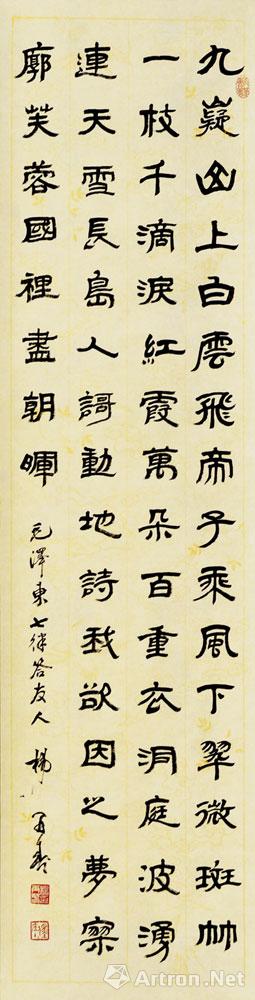 九嶷山上白雲飛帝子乘風下翠微斑竹
一枝千滴淚紅霞萬朵百重衣洞庭波湧
連天雪長島人謌動地詩我欲因之夢寥
廓芙蓉國裡盡朝暉
毛澤東七律答友人 楊再春
Artron.Net